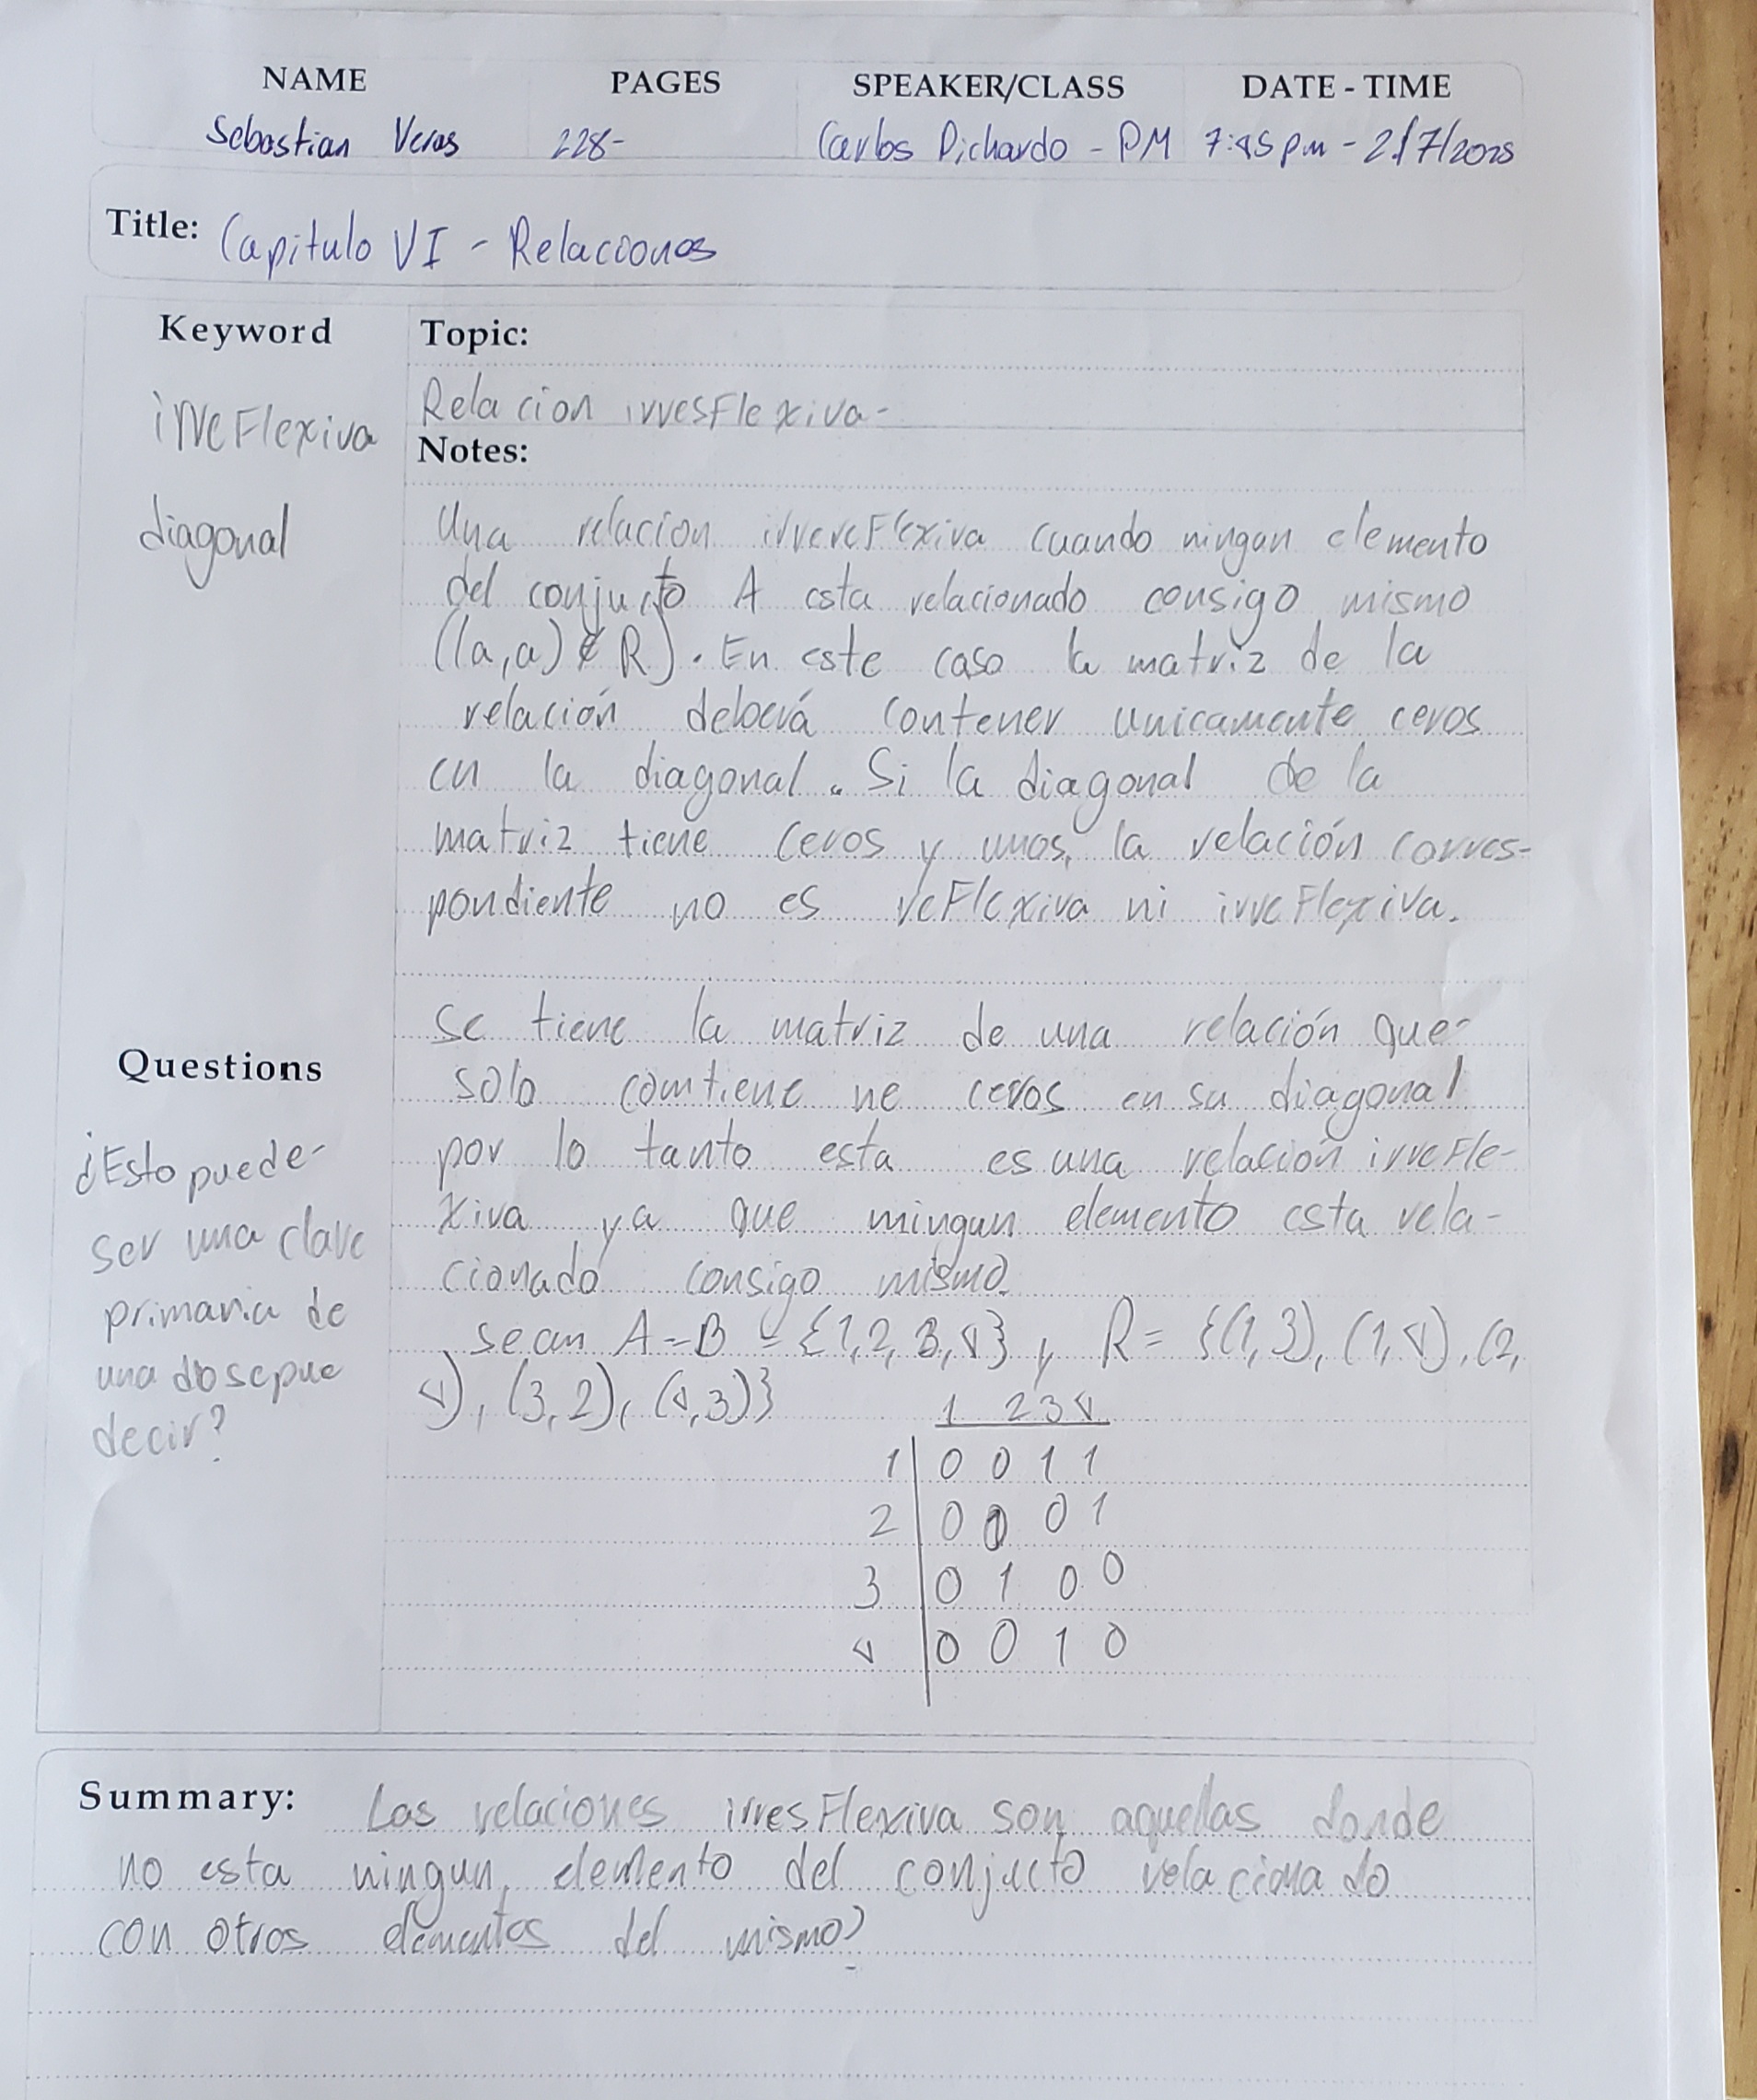 NAME PAGES SPEAKER/CLASS DATE - TIME
Sebastian Veras 228- Carlos Pichardo - PM 7:45 pm - 2/7/2025
Title: Capitulo VI - Relaciones
Keyword
irreflexiva
diagonal
Topic:
Relacion irresflexiva-
Notes:
Una relacion irrereflexiva cuando ningun elemento
del conjucto A esta relacionado consigo mismo
((a,a) ∉ R). En este caso la matriz de la
relación deberá contener unicamente ceros
en la diagonal. Si la diagonal de la
matriz tiene ceros y unos, la relación corres-
pondiente no es reflexiva ni irreflexiva.
se tiene la matriz de una relación que-
solo comtiene ne ceros en su diagonal
por lo tanto esta es una relación irrefle-
xiva ya que mingun elemento esta rela-
cionado consigo mismo.
sean A = B = {1,2,3,4} y R = {(1,3), (1,4), (2,
4), (3,2), (4,3)}
1 2 3 4
1 0 0 1 1
2 0 0 0 1
3 0 1 0 0
4 0 0 1 0
Questions
¿Esto puede-
ser una clave
primaria de
una
decir?
Summary: Las relaciones irresflexiva son aquellas donde
no esta ningun elemento del conjucto relacionado
con otros elementos del mismo